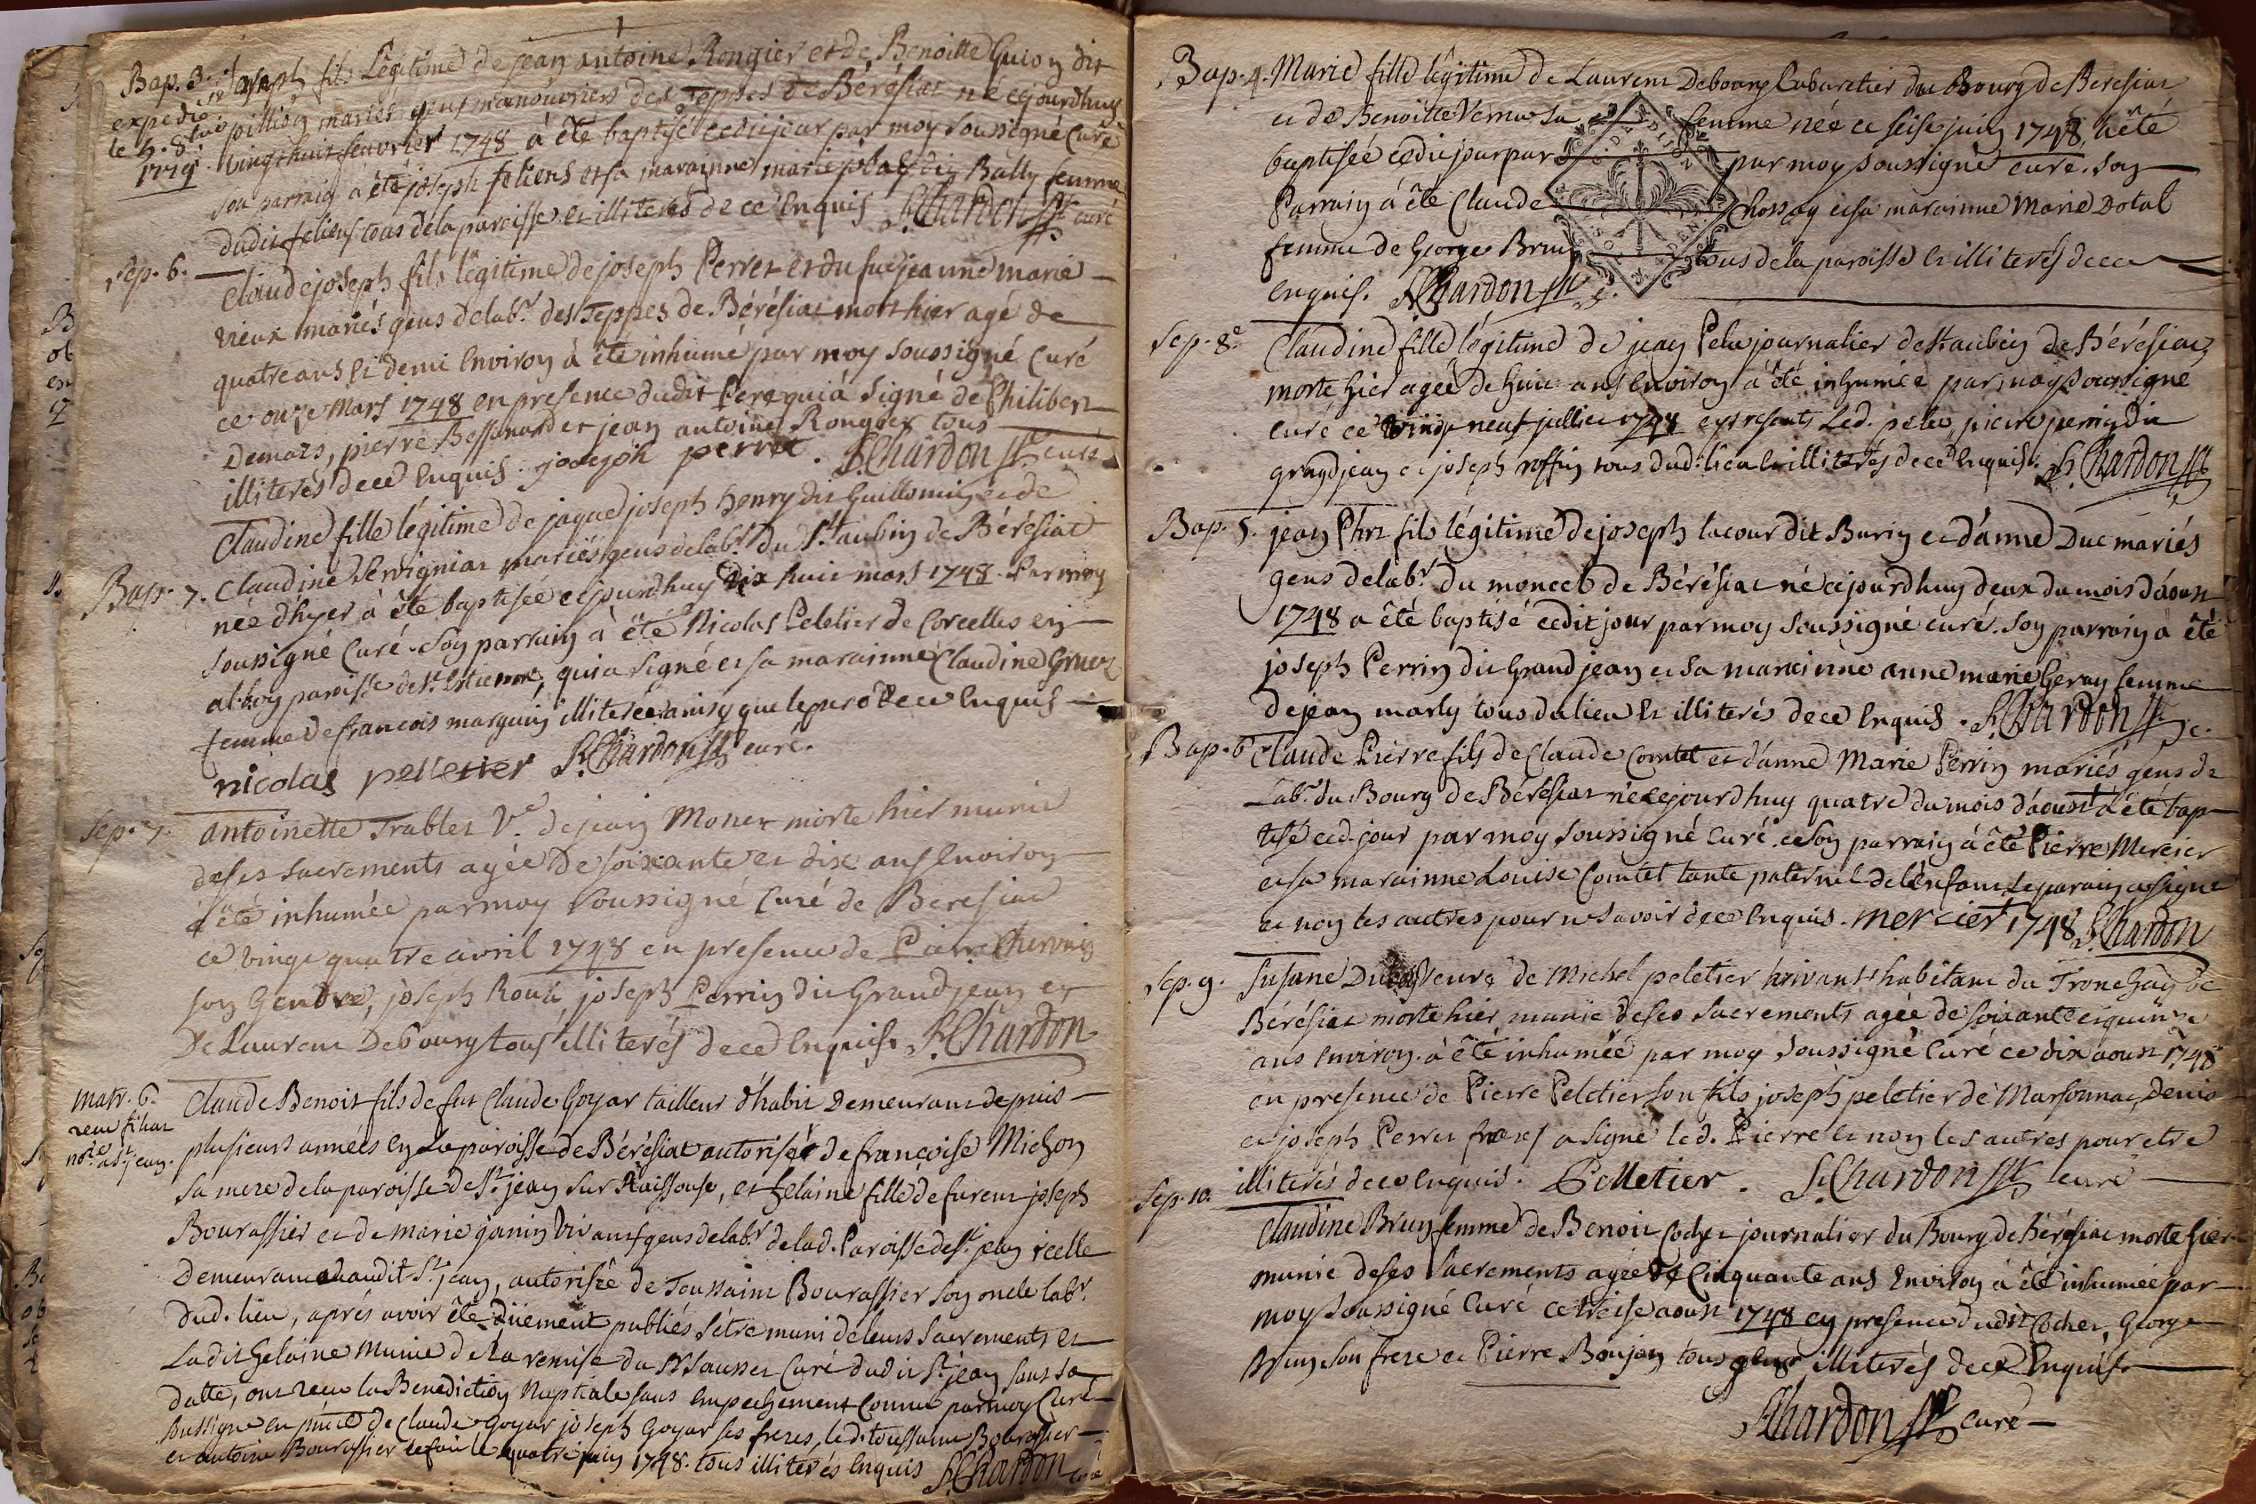 Bap. 3. joseph fils Légitime de jean antoine Rongier et de Benoitte Guion dit
expedié
le 9. 8bre
1779.
pillion mariés gens manouvriers des Teppes de Bérésiat né cejourdhuy
vingt huit feuvrier 1748 à été baptisé cedit jour par moy soussigné Curé
son parrain a été joseph feliens et sa marainne marie josastein Bally femme
dudit feliens tous de la paroisse et illiterés de ce Enquis S. Chardon ptre curé
sep. 6. Claude joseph fils légitime de joseph Perret et du fue jeanne marie
vieux mariés gens de labr. des Teppes de Bérésiat mort hier agé de
quatre ans et demi Environ à été inhumé par moy soussigné Curé
ce onze Mars 1748 en presence dudit Pere qui a signé de Philibert
Demars, pierre Bessonard et jean antoine Rongier tous
illiterés de ce Enquis. josepjh perret. S. Chardon ptre curé
Claudine fille légitime de jaque joseph henry dit Guillomin et de
Bap. 7. Claudine Servigniat mariés gens de labr. du St. aubin de Bérésiat
née d'hyer à été baptisée cejourdhuy dix huit mars 1748. Par moy
soussigné Curé. Son parrain à été Nicolas Peletier de Corcelles en
albon paroisse de st. Estienne, qui a signé et sa marainne Claudine Gruez
femme de francois marguin illiterée ainsy que le pere de ce Enquis
nicolas pelletier S. Chardon ptre curé.
sep. 7. Antoinette Trablet Ve. de jean Monet morte hier munie
de ses sacrements agée de soixante et dix ans Environ
à été inhumée par moy soussigné Curé de Beresiat
ce vingt quatre avril 1748 en presence de Pierre Chervin
son Gendre, joseph Roux, joseph Perrin dit Grandjean et
De Laurent Debourg tous illiterés de ce Enquis. S. Chardon
matr. 6. Claude Benoit fils de fut Claude Goyar tailleur d'habit Demeurant depuis
plusieurs années en la paroisse de Bérésiat autorisé de françoise Michon
sa mere de la paroisse de St. jean sur Raissouse, et helaine fille de furent joseph
Bourassier et de marie janin vivants gens de labr. de lad. Paroisse de st. jean icelle
Demeurant audit St. jean, autorisée de Toussaint Bourassier son oncle labr.
dud. lieu, aprés avoir été düement publiés s'être muni de leurs sacrements et
Ladit Gelaine Munie de la remise du Sr Sausset Curé dudit St. jean sous sa
datte, ont receu la Benediction Nuptiale sans Empechement Connu par moy Curé
soussigné en pñce de Claude Goyar joseph Goyar ses freres, led. toussaint Bourassier
et antoine Bourassier le fait le quatre juin 1748. tous illiterés Enquis S. Chardon curé
Bap. 4. Marie fille légitime de Laurent Debourg Cabaretier du Bourg de Beresiat
et de Benoitte Vernu sa femme née ce seise juin 1748, à été
baptisée cedit jour par par moy soussigné curé. son
Parrain à été Claude Chossay et sa marainne Marie Dotal
femme de George Brun tous de la paroisse et illiterés de ce
Enquis. S. Chardon ptre c.
sep. 8. Claudine fille légitime de jean Pelu journalier de st aubin de Bérésiat
morte hier agée de huit ans Environ a été inhumée par moy soussigné
curé ce vingt neuf jullet 1748 es presents Led. pelu, pierre perrin dit
grandjean et joseph roffin tous dud. lieu et illiterés de ce Enquis. S. Chardon ptre
Bap. 5. jean Phrt fils légitime de joseph lacour dit Burin et d'anne Duc mariés
gens de labr. du moncel de Bérésiat né cejourdhuy deux du mois d'aoust
1748 a été baptisé cedit jour par moy soussigné curé. Son parrain à été
joseph Perrin dit Grandjean et sa marainne anne marie Geray femme
de jean marly tous du lieu et illiterés de ce Enquis. S. Chardon ptre c.
Bap. 6 Claude Pierre fils de Claude Comtet et d'anne Marie Perrin mariés gens de
Labr. du Bourg de Bérésiat né cejourdhuy quatre du mois d'aoust à été bap-
tisé ced. jour par moy soussigné Curé. et Son parrain à été Pierre Mercier
et sa marainne Louise Comtet tante paternel de l'Enfant Le parrain a signé
et non les autres pour ne savoir de ce Enquis. mercier 1748 S. Chardon
sep. 9. Susane Duc Veuve de Michel peletier vivants habitant du Tronchay de
Bérésiat morte hier munie de ses sacrements agée de soixante et quinze
ans Environ. à été inhumée par moy soussigné Curé ce dix aoust 1748
en presence de Pierre Peletier son fils joseph peletier de Marsonnat, Denis
et joseph Perret freres a signé led. Pierre et non les autres pour etre
illiterés de ce Enquis. Pelletier. S. Chardon ptre curé
sep. 10. Claudine Brun femme de Benoit Cochet journalier du Bourg de Bérésiat morte hier
munie de ses sacrements agée de Cinquante ans Environ à été inhumée par
moy soussigné Curé ce treise aoust 1748 en presence dudit Cochet, George
Brun son frere et Pierre Boujon tous gens illiterés de ce Enquis
S. Chardon ptre curé